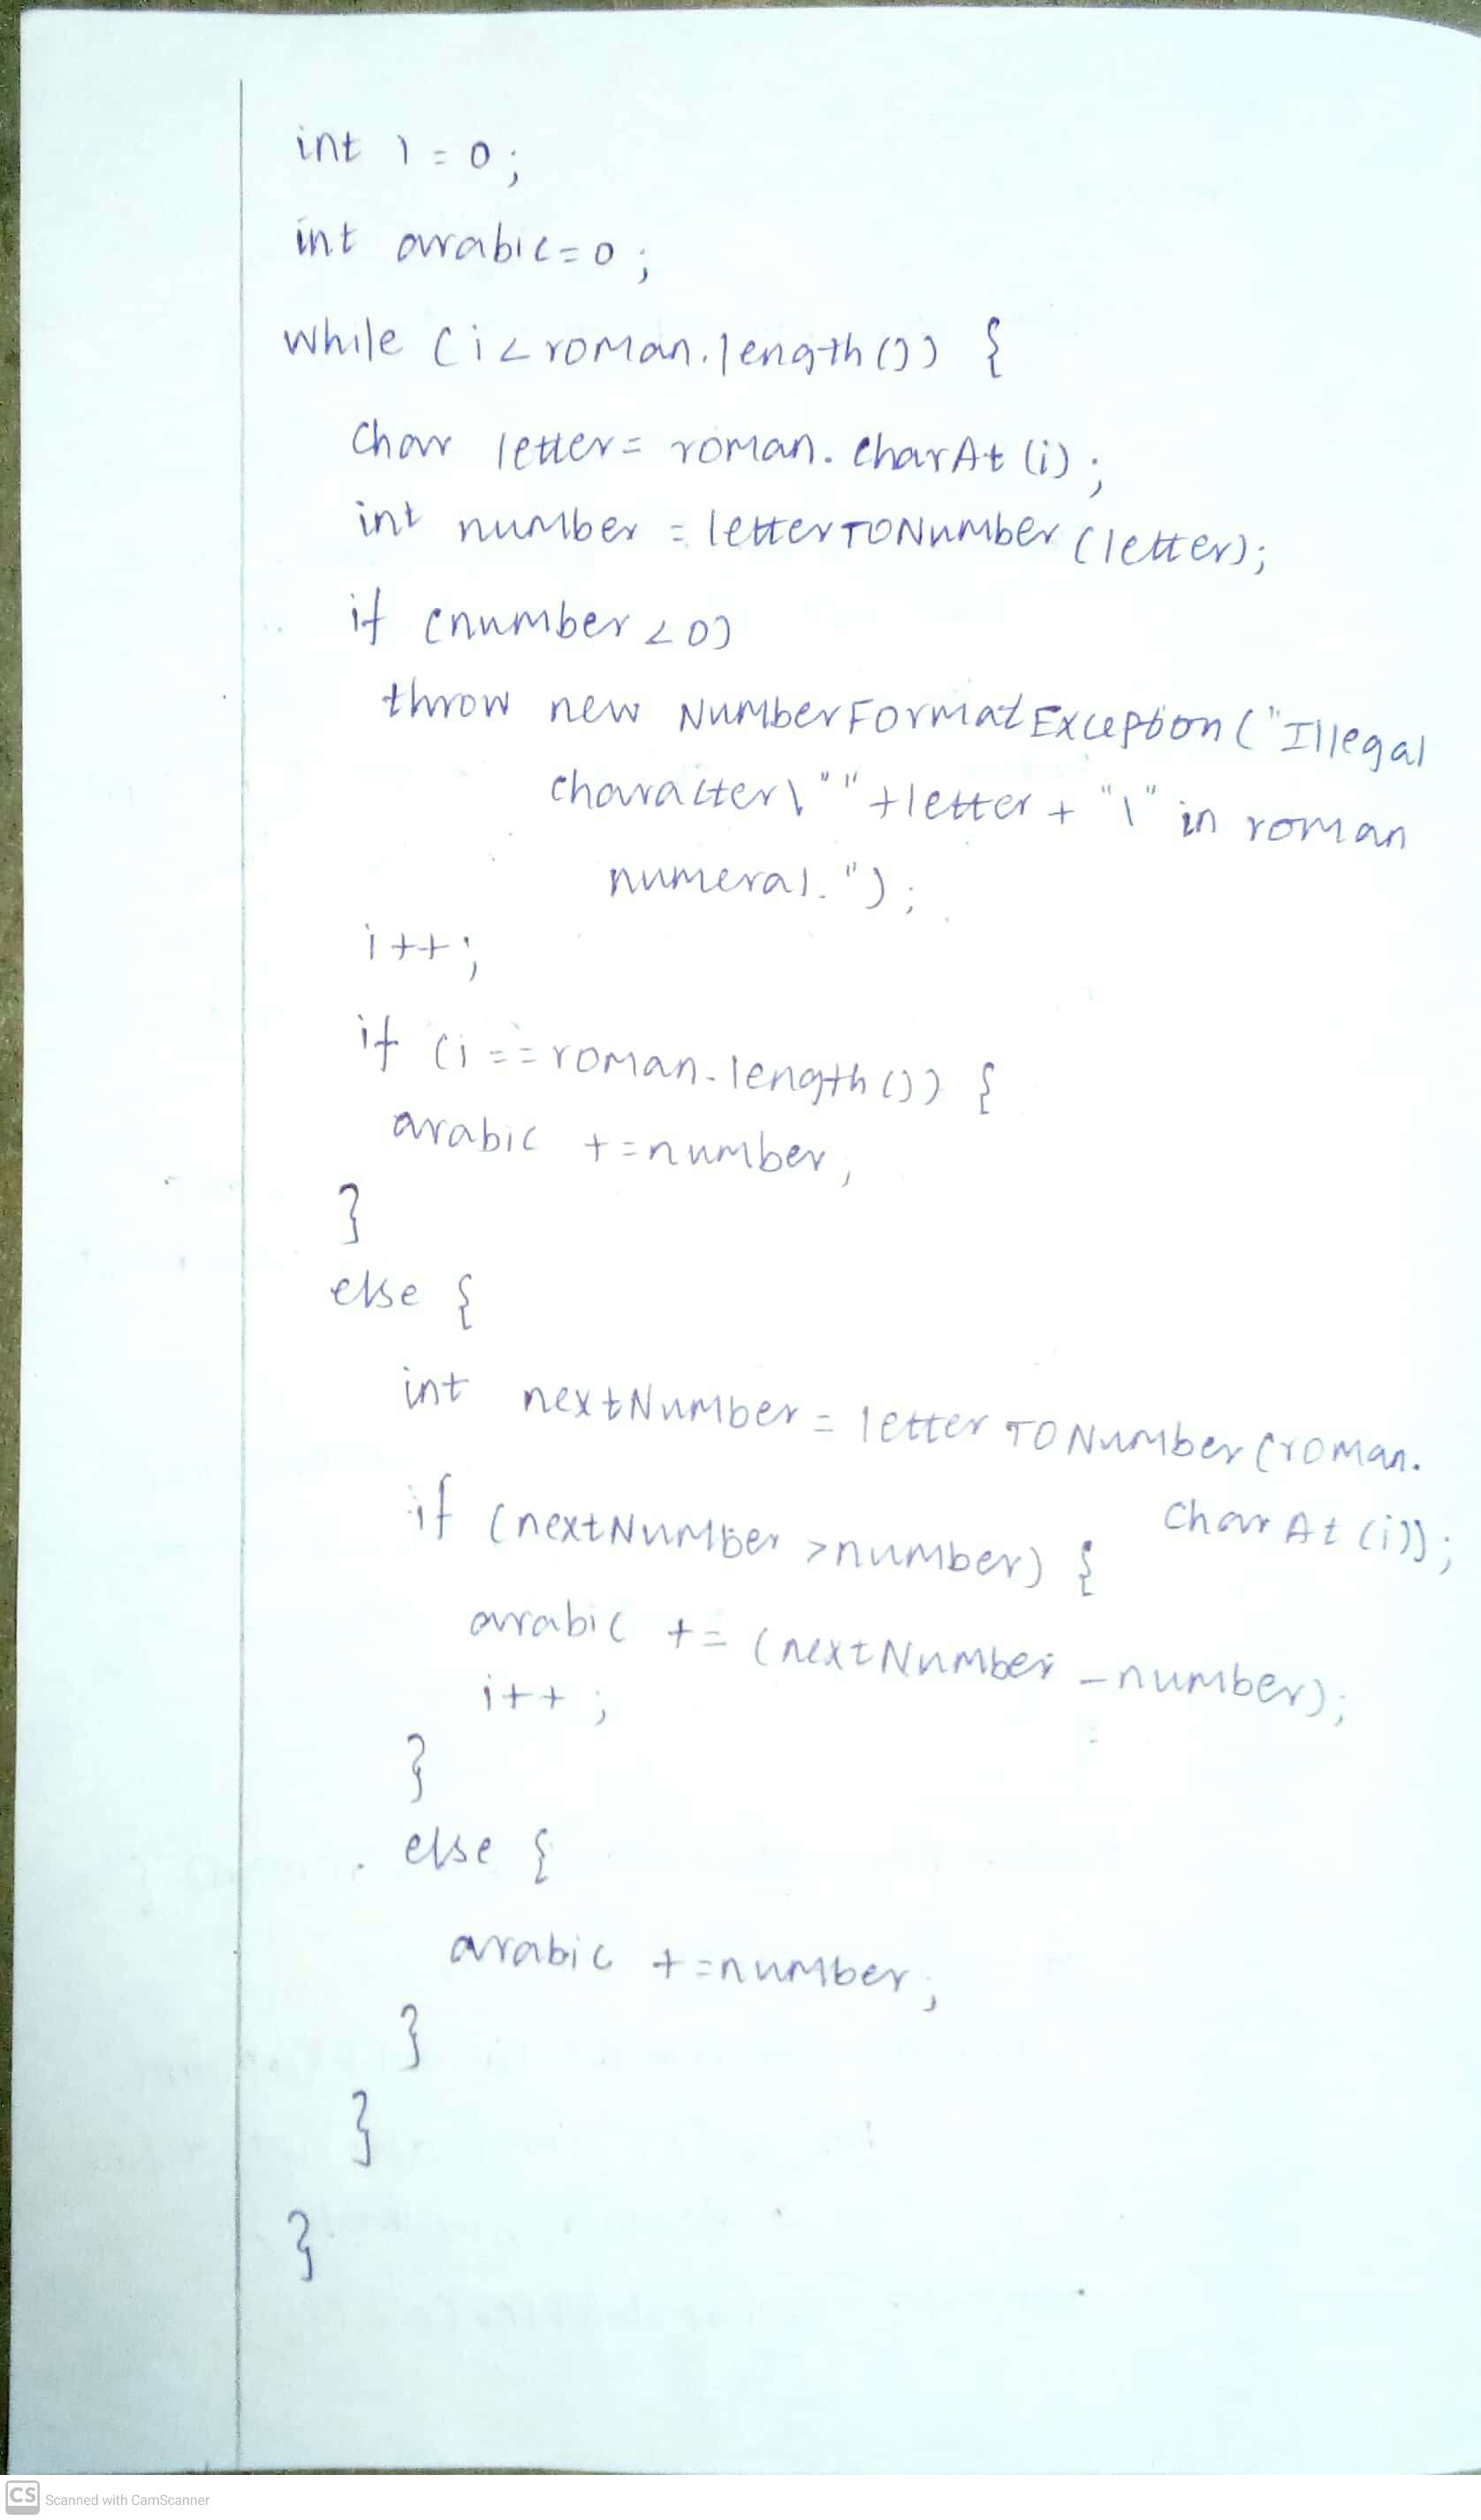 int i=0;
int arabic=0;
while (i<roman.length()) {
char letter= roman.charAt(i);
int number = letterToNumber(letter);
if (number <0)
throw new NumberFormatException("Illegal
character\""+letter+"\" in roman
numeral.");
i++;
if (i==roman.length()) {
arabic +=number;
}
else {
int nextNumber = letterToNumber(roman.
charAt(i));
if (nextNumber >number) {
arabic += (nextNumber -number);
i++;
}
else {
arabic +=number;
}
}
}
CS Scanned with CamScanner